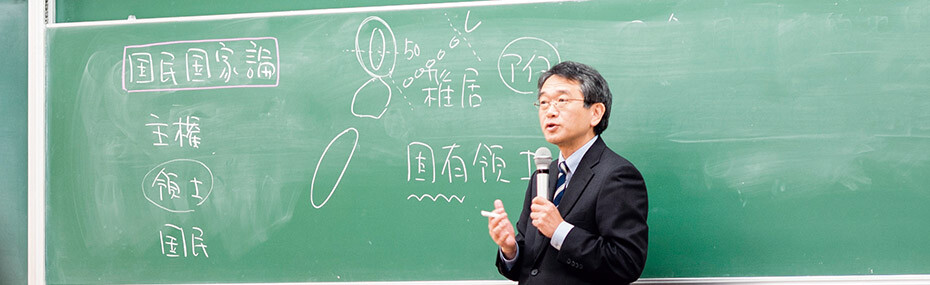 国民国家論
主権
領土
国民
50
雑居
アイヌ
固有領土